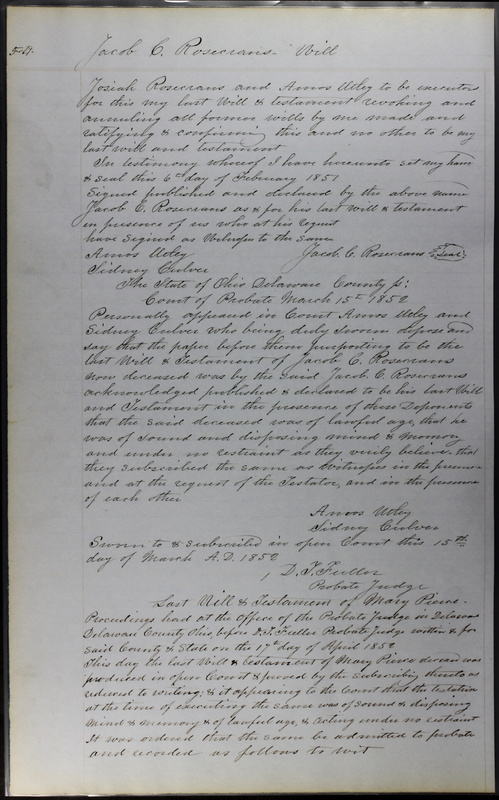 Jacob C. Rosecrans Will
Josiah Rosecrans and Amos Utley to be executors
for this my last Will & testament revoking and
annulling all former wills by me made and
ratifying & confirming this and no other to be my
last will and testament
In testimony whereof I have hereunto set my hand
& seal this 6th day of February 1851
Signed published and declared by the above name
Jacob C. Rosecrans as & for his last will & testament
in presence of us who at his request
have signed as Witnesses to the same
Amos Utley Jacob C. Rosecrans Seal
Sidney Culver
The State of Ohio Delaware County ss:
Court of Probate March 15th 1852
Personally appeared in Court Amos Utley and
Sidney Culver who being duly Sworn depose and
say that the paper before them purporting to be the
last Will & Testament of Jacob C. Rosecrans
now deceased was by the said Jacob C. Rosecrans
acknowledged published & declared to be his last Will
and Testament in the presence of these Deponents
that the said deceased was of lawful age, that he
was of sound and disposing mind & memory
and under no restraint as they verily believe that
they subscribed the same as Witnesses in the presence
and at the request of the Testator, and in the presence
of each other
Amos Utley
Sidney Culver
Sworn to & subscribed in open Court this 15th
day of March A.D. 1852
D. T. Fuller
Probate Judge
Last Will & Testament of Mary Pierce
Proceedings had at the Office of the Probate Judge in Delaware
Delaware County Ohio, before D. T. Fuller Probate Judge within & for
said County & State on the 17th day of April 1852
This day the last Will & testament of Mary Pierce was
produced in open Court & proved by the subscribing thereto as
reduced to writing; & it appearing to the Court that the testatrix
at the time of executing the same was of sound & disposing
mind & memory & of lawful age, & acting under no restraint
It was ordered that the same be admitted to probate
and recorded as follows to wit